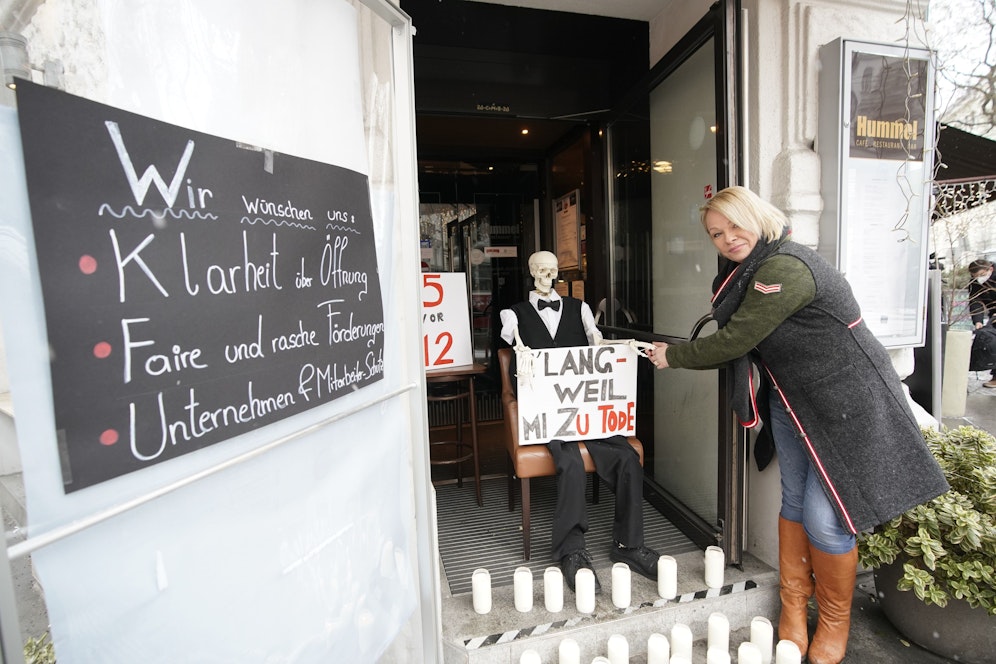 Wir wünschen uns:
Klarheit über Öffnung
Faire und rasche Förderungen
Unternehmen & Mitarbeiter-Schutz
5
VOR
12
LANG-
WEIL
MI ZU TODE
Hummel
CAFÉ RESTAURANT BAR